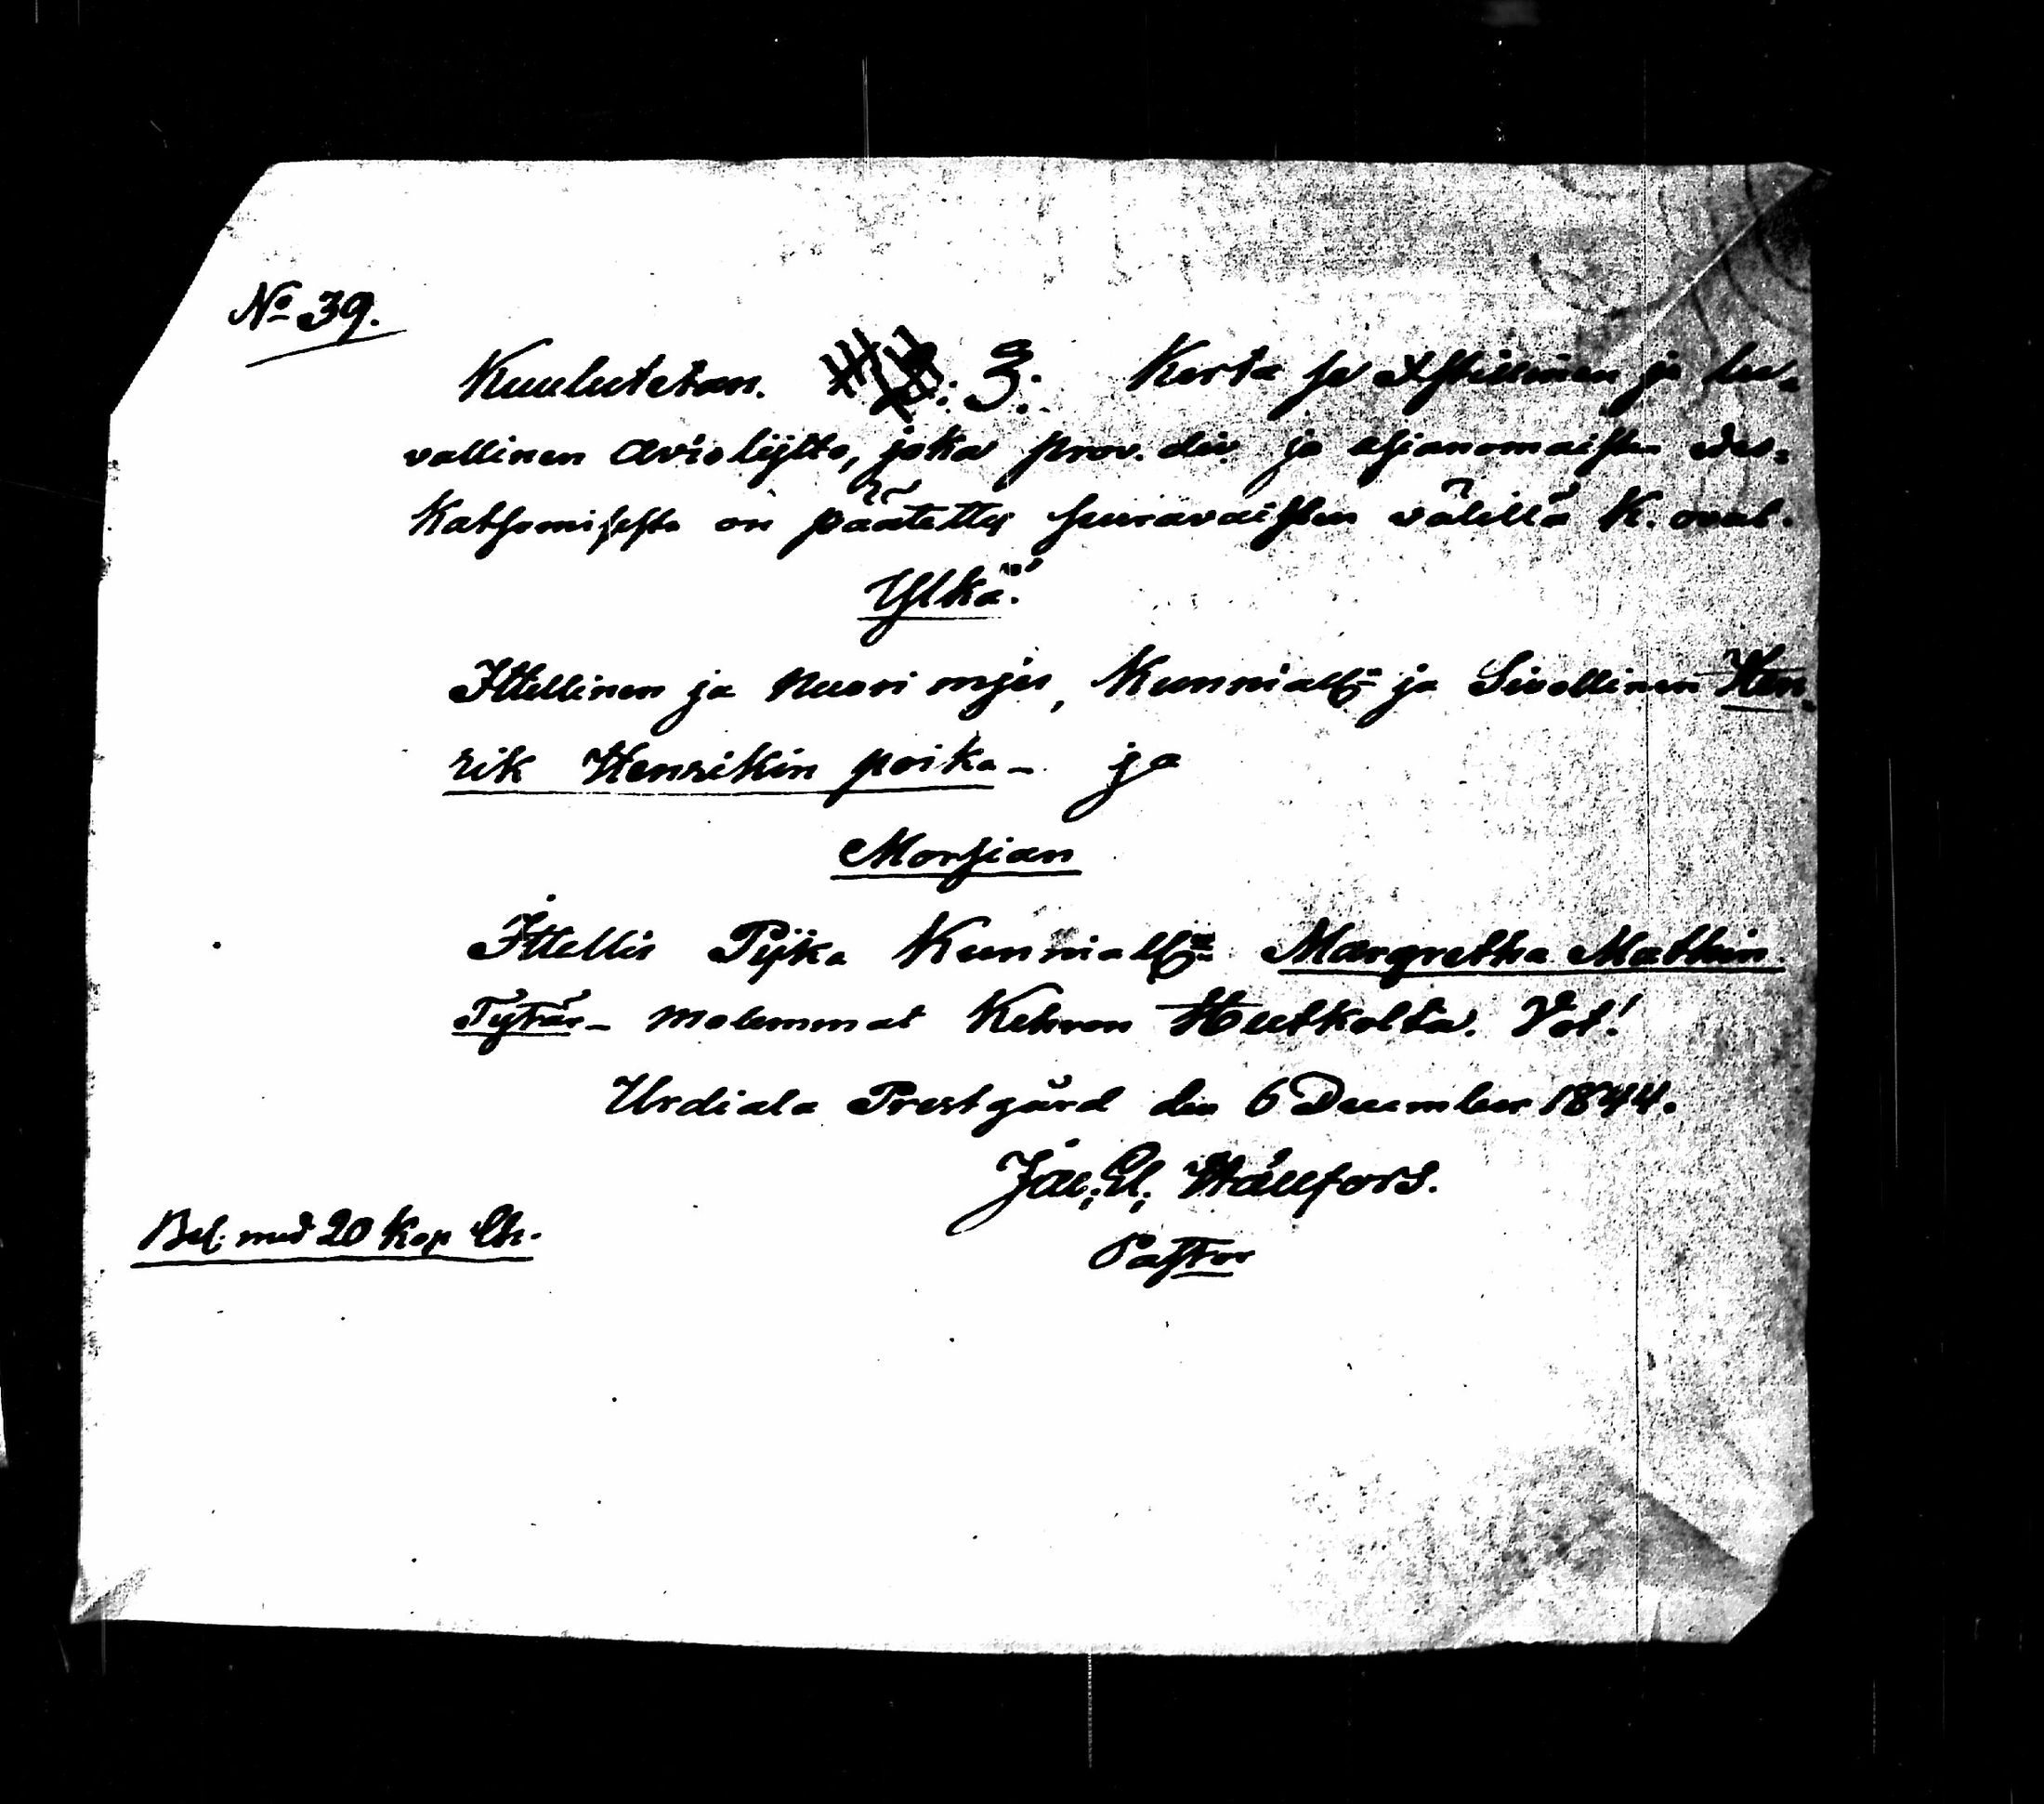 No 39.
Kuulutetan. 3. Kerta se Xstillinen ja lu-
vallinen Avioliÿtto, joka prov. div. ja asianomaisten edes-
katsomisesta on päätetty seuravaisten välillä K. ovat.
Ylkä.
Ittellinen ja Nuori mjes, Kunniall. ja Siwollinen Hen-
rik Henrikin poika - ja
Morsian
Ittellis Pijka Kunniall. Margretha Mathin
Tytär - molemmat Kehron Hutkolta. Vot!
Urdiala Prestgård den 6 December 1844.
Jac. El. Hällfors.
Pastor
Bel. med 20 kop Ch.